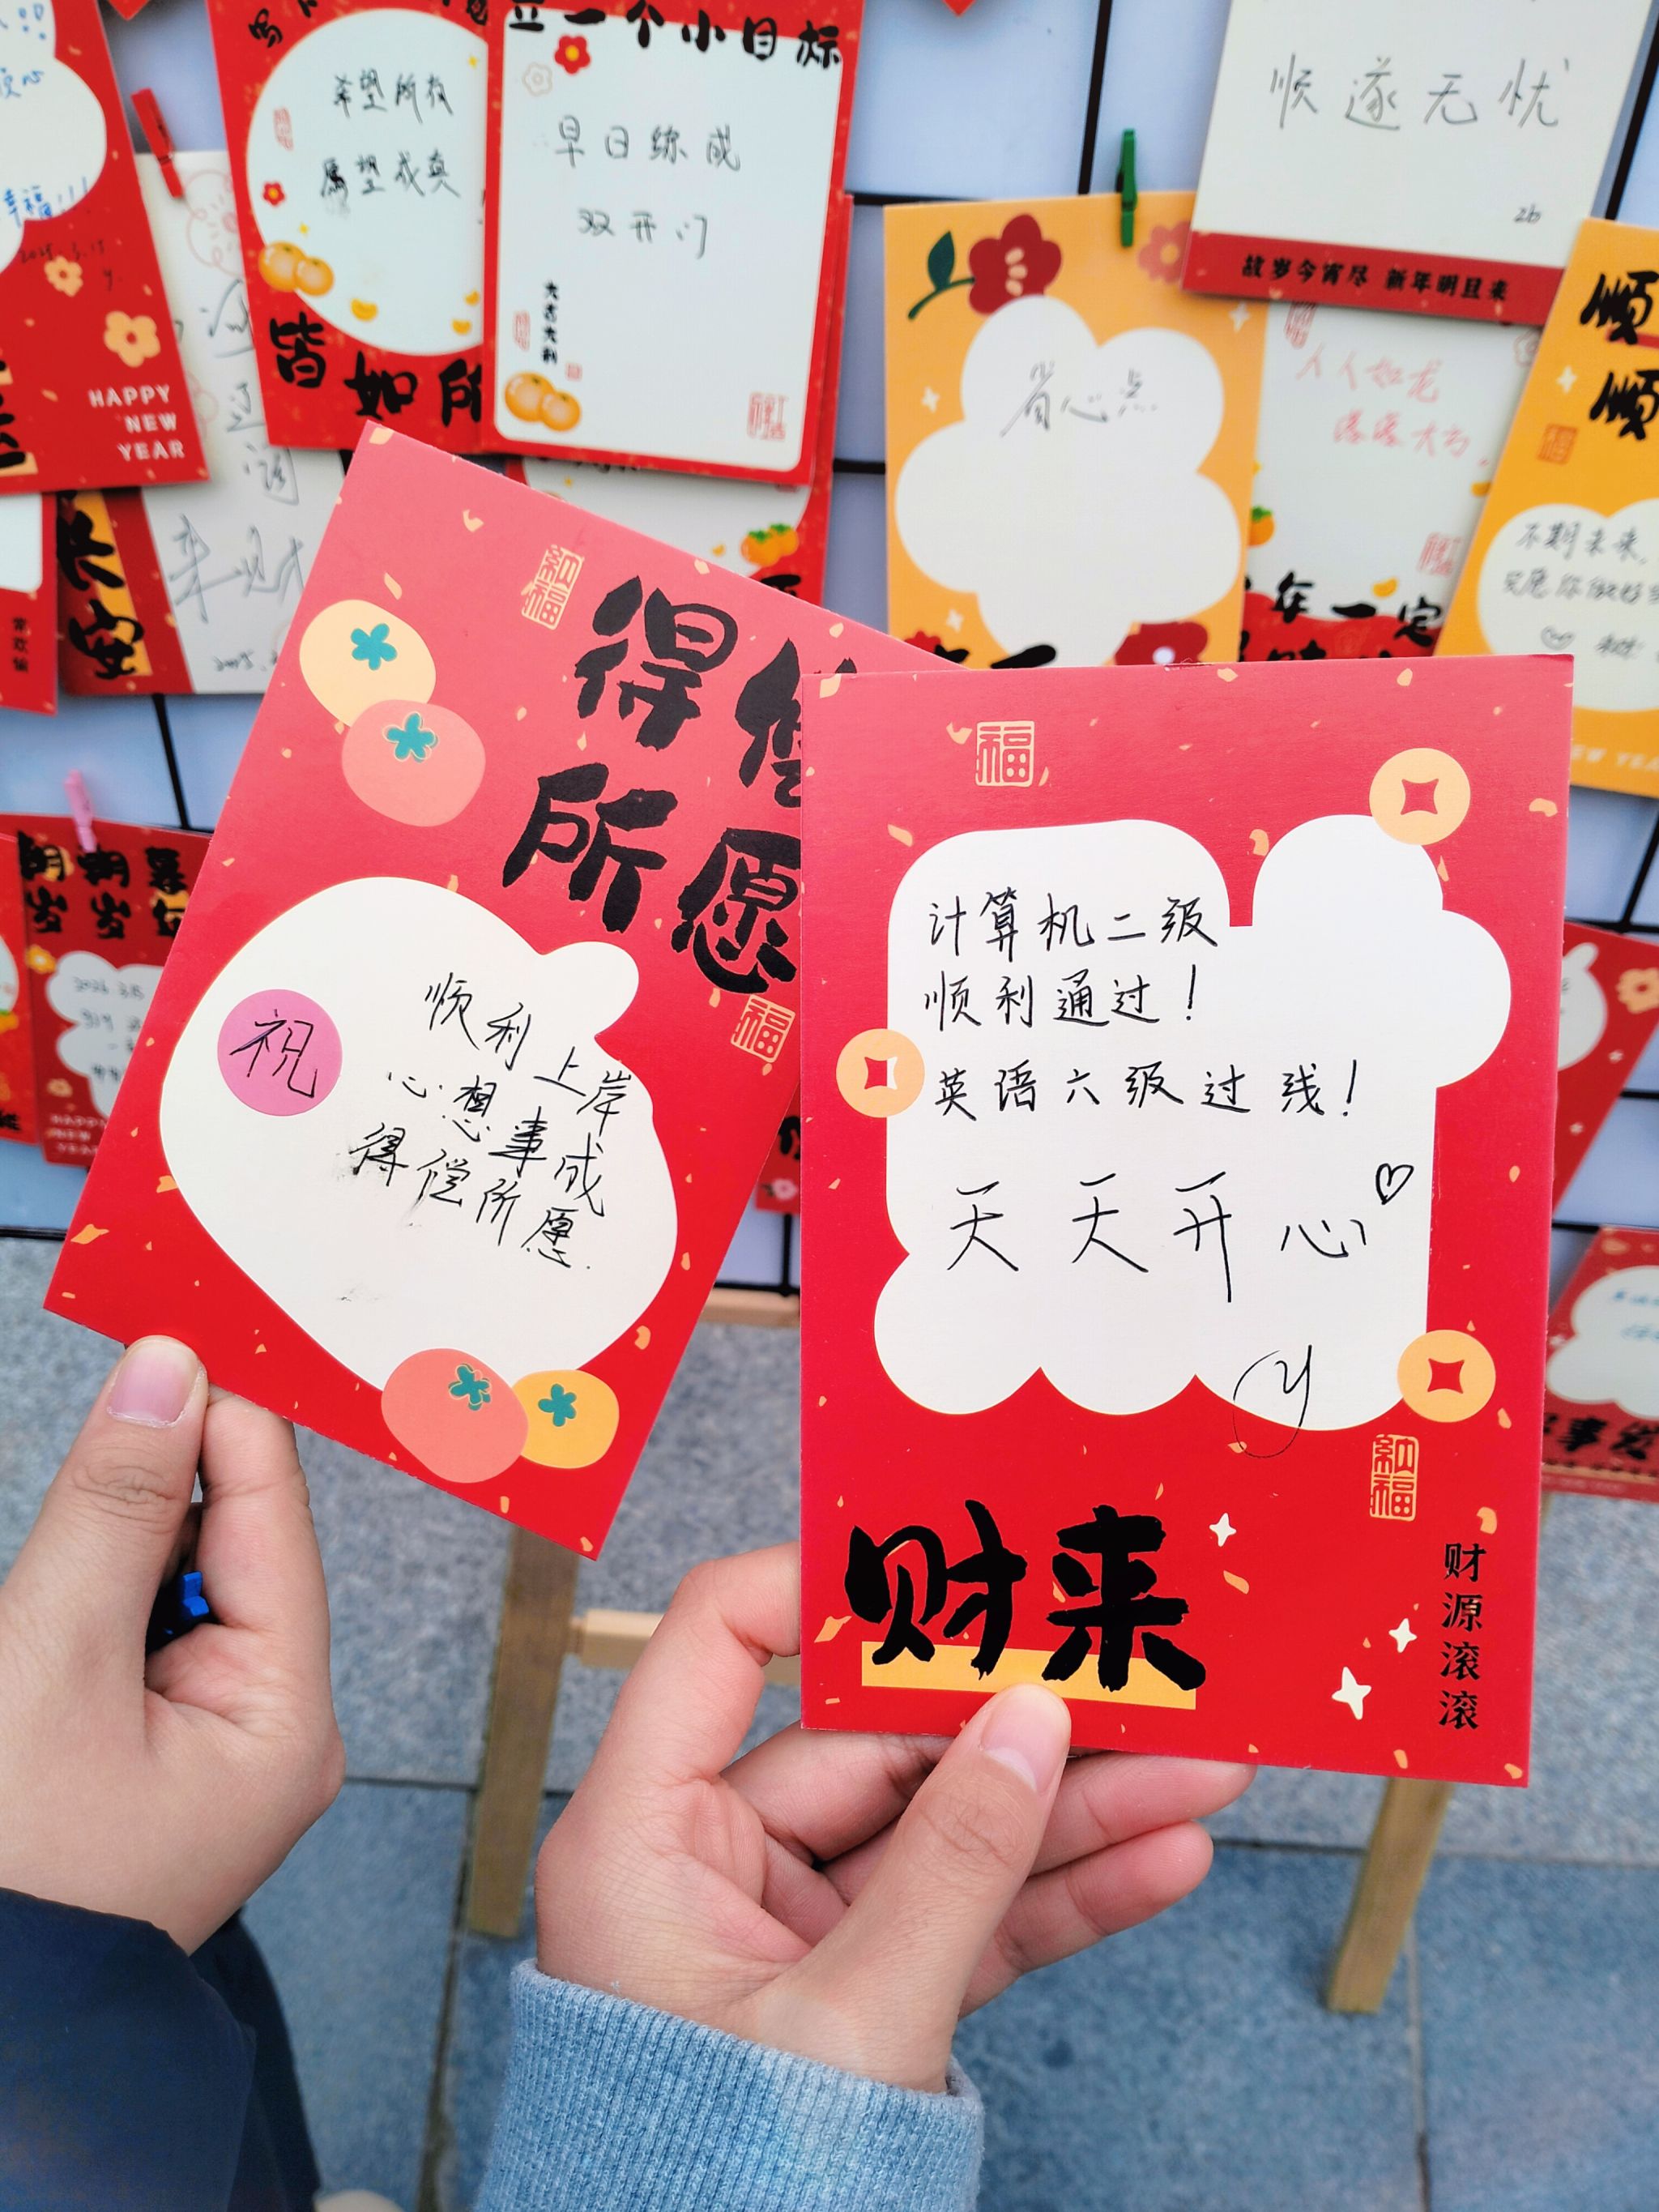 立一个小目标
早日练成
双开门
大吉大利
希望所有
愿望成真
皆如所
顺遂无忧
26
故岁今宵尽 新年明旦来
省心点
人人如龙
落落大方
顺
顺
不期未来,
幸福!!
2025.3.15
y.
HAPPY
NEW
YEAR
长
安
常欢愉
年一定
纳福
得偿
所愿
福
祝
顺利上岸
心想事成
得偿所愿.
福
计算机二级
顺利通过!
英语六级过线!
天天开心♡
y
纳福
财来
财源滚滚
朝朝暮
岁岁
HAPPY
NEW
YEAR